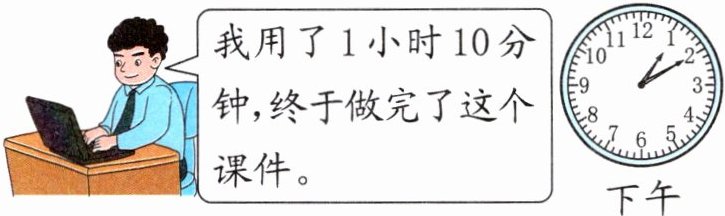 我用了1小时10分
钟,终于做完了这个
课件。
12
1
2
3
4
5
6
7
8
9
10
11
下午